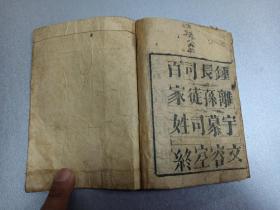 鍾離宇文
長孫慕容
司徒司空
百家姓終